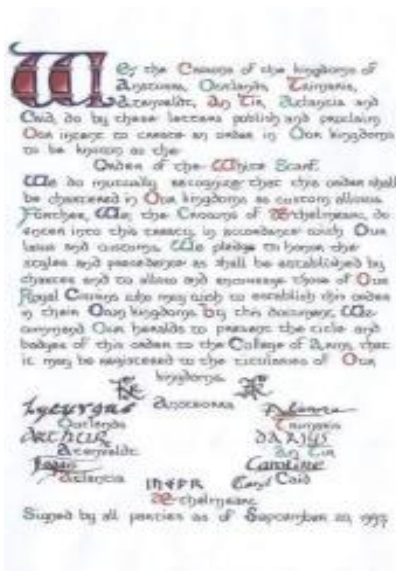 We, the Crowns of the kingdoms of
Ansteorra, Outlands, Trimaris,
Atenveldt, An Tir, Atlantia and
Caid, do by these letters publish and proclaim
Our intent to create an order in Our kingdoms
to be known as the
Order of the White Scarf.
We do mutually recognize that this order shall
be chartered in Our kingdoms as custom allows.
Further, We, the Crowns of Æthelmearc, do
enter into this treaty, in accordance with Our
laws and customs. We pledge to honor the
styles and precedence as shall be established by
charter and to allow and encourage those of Our
Royal Cousins who may wish to establish this order
in their Own kingdoms. By this document, We
commend Our heralds to present the title and
badges of this order to the College of Arms, that
it may be registered to the titularies of Our
kingdoms.
Ansteorra
Lycurgus
Outlands Trimaris
Arthur DARIUS
Atenveldt An Tir
Caroline
Atlantia Caid
Æthelmearc
Signed by all parties as of September 20, 1997